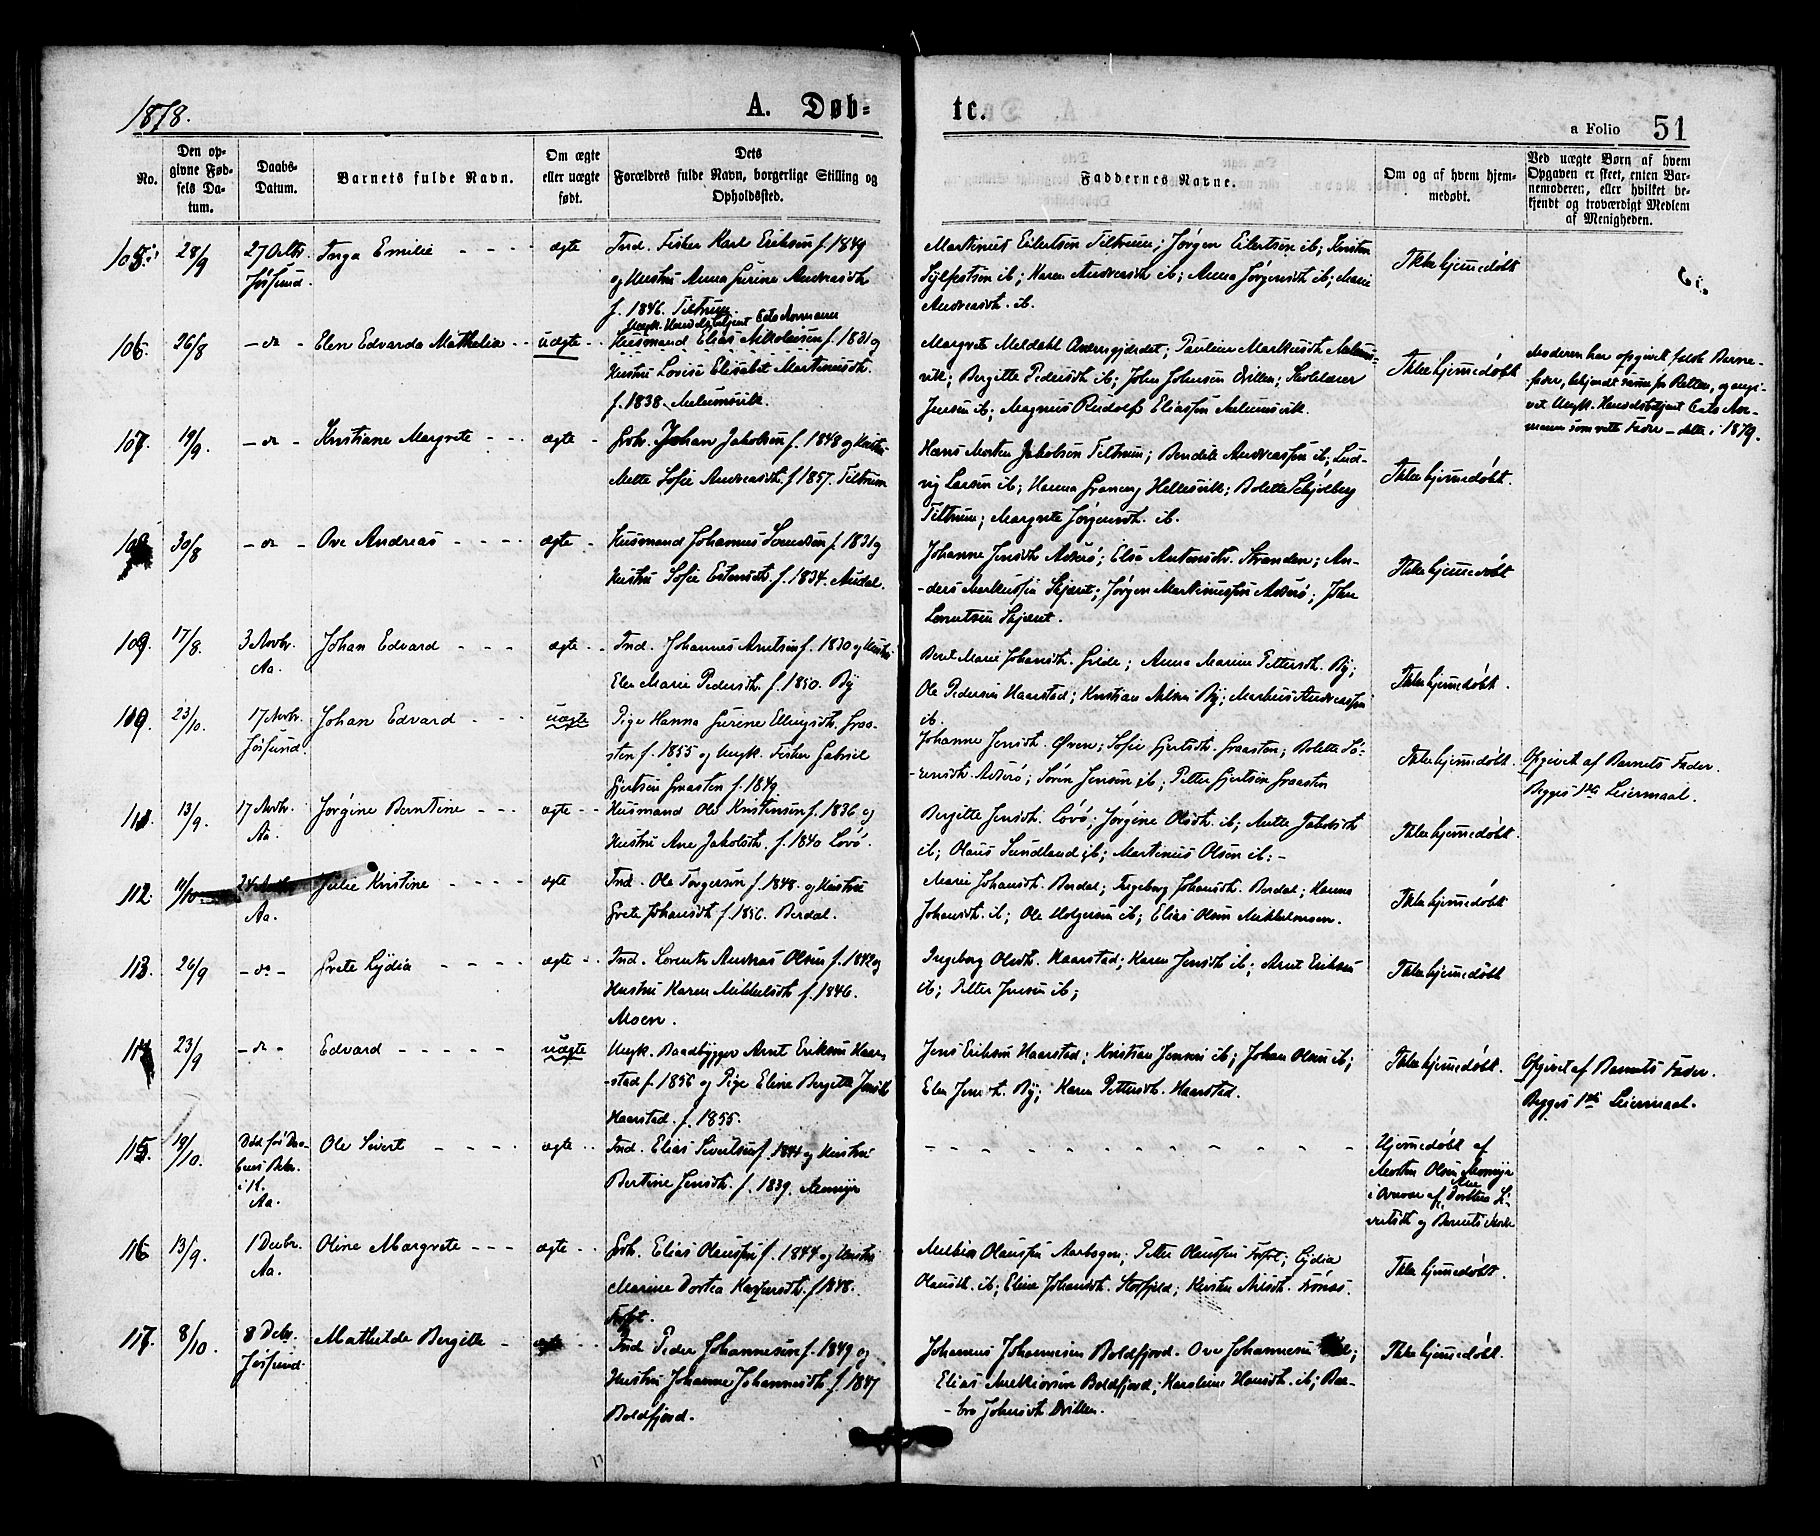 1878.
A. Døb-
te.
a Folio 51
No.
Den op-
givne Fød-
sels Da-
tum.
Daabs-
Datum.
Barnets fulde Navn.
Om ægte
eller uægte
født.
Dets
Forældres fulde Navn, borgerlige Stilling og
Opholdssted.
Faddernes Navne.
Om og af hvem hjem-
medøbt.
Ved uægte Børn af hvem
Opgaven er skeet, enten Bar-
nemoderen, eller hvilket be-
kjendt og troværdigt Medlem
af Menigheden.
105. 28/9 27 Octbr. Inga Emilie - - - - ægte Ind. Fisker Karl Eriksen f. 1849
Jøssund. og Hustru Anna Gurine Andreasdt.
f. 1846. Tiltrum.
Martinus Eilertsen Tiltrum; Jørgen Eilertsen ib; Kristen
Sylfestsen ib; Karen Andreasdt ib; Anna Jørgensdt ib; Marie
Andreasdt. ib.
Ikke hjemmedøbt
Ungk. Handelsbetjent Eats Normann
106. 26/8 - do - Elen Edvarda Mathalia - - uægte - Husmand Elias Nikolaisen f. 1831 og
Hustru Lovise Elisabet Martinusdt.
f. 1838. Melumsvik.
Margrete Meldahl Overngjærdet; Pauline Markusdt Melums-
vik; Bergitte Pedersdt ib; John Johnsen Qvillen; Skolelærer
Jensen ib; Magnus Rudolf Eliassen Melumsvik.
Ikke hjemmedøbt
Moderen har opgivet falsk Barne-
fader, bekjendt samme for Retten, og opgi-
vet Ungk. Handelsbetjent Eats Nor-
mann som rette Fader - dette i 1879.
107. 19/9 - do - Kristiane Margrete - - - ægte - Grb. Johan Jakobsen f. 1848 og Hustru
Mette Sofie Andreasdt. f. 1857. Tiltrum
Hans Morten Jakobsen Tiltrum; Bendik Andreassen ib; Lud-
vig Larsen ib; Hanna Hellesvik; Bolette Schjølberg
Tiltrum; Margrete Jørgensdt. ib.
Ikke hjemmedøbt.
108. 30/8 - do - Ove Andreas - - - - ægte - Husmand Johannes Svendsen f. 1831 og
Hustru Sofie Estensdt. f. 1834. Audal.
Johanne Jensdt. Askerø; Elsa Antonsdt. Stranden; An-
ders Markussen Skjæret; Jørgen Martinussen Askerø; John
Lorentsen Skjæret.
Ikke hjemmedøbt
109. 17/8. 3 Novbr. Johan Edvard - - - ægte - - Ind. Johannes Arntsen f. 1830 og Hustru
Aa. Elen Marie Pedersdt. f. 1850. By
Beret Marie Johansdt. Gride; Anna Marine Pettersdt. By;
Ole Pedersen Haarstad; Kristian Nilsen By; Markus Andreassen
ib.
Ikke hjemmedøbt.
110. 23/10. 17 Novbr. Johan Edvard - - - uægte Pige Hanna Gurine Ellingsdt. Graa-
Jøssund. sten f. 1855 og Ungk. Fisker Gabriel
Gjertsen Graasten f. 1849
Johanne Jensdt. Øren; Sofie Gjertsdt. Graasten; Bolette Sø-
rensdt. Askerø; Søren Jensen ib; Petter Gjertsen Graasten
Ikke hjemmedøbt.
Opgivet af Barnets Fader.
Begges 1ste Leiermaal.
111. 13/9. 17 Novbr. Jørgine Berntine - - - ægte - - Husmand Ole Kristensen f. 1836 og
Aa. Hustru Ane Jakobsdt. f. 1840 Løvø.
Bergitte Jensdt. Løvø; Jørgine Olsdt. ib; Mette Jakobsdt
ib; Olaus Sundland ib; Martinus Olsen ib: -
Ikke hjemmedøbt.
112. 11/10 24 Novbr. Julie Kristine - - - - ægte Ind. Ole Torgersen f. 1848. og Hustru
Aa. Grete Johansdt f. 1856. Berdal.
Marie Johansdt. Berdal; Ingeborg Johansdt. Berdal; Hanna
Johansdt. ib; Ole Holgersen ib; Elias Olsen
Ikke hjemmedøbt
113. 26/9 - do - Grete Lydia - - - - ægte - - Ind. Lorents Andreas Olsen f. 1842 og
Hustru Karen Mikkelsdt f. 1846.
Moen.
Ingeborg Olsdt. Haarstad; Karen Jensdt ib; Arnt Eriksen
ib; Petter Jensen ib;
Ikke hjemmedøbt
114. 23/9 - do - Edvard - - - - - uægte Ungk. Baadbygger Arnt Eriksen Haar-
stad f. 1856 og Pige Eline Bergitte Jensdt.
Haarstad. f. 1855.
Jens Eriksen Haarstad; Kristian Jensen ib; Johan Olsen ib;
Elen Jensdt. By; Karen Pettersdt. Haarstad.
Ikke hjemmedøbt.
Opgivet af Barnets Fader.
Begges 1ste Leiermaal.
115. 19/10. Død før Daa- Ole Sivert - - - - ægte - - Ind. Elias Sivertsen f. 1844 og Hustru
bens Bekr. Bertine Jensdt. f. 1839. Momyr
i K.
Aa.
Hjemmedøbt af
Morten Olsen Momyr
i Overvær af Ane Dorthea Si-
vertsdt og Barnets Moder
116 13/9. 1 Decbr. Oline Margrete - - - ægte - - Grb. Elias Olaussen f. 1844 og Hustru
Aa. Marine Dortea Kaspersdt. f 1848.
Tofst.
Melkior Olaussen Aarbogen; Petter Olaussen Tofst; Lydia
Olausdt. ib; Eline Johansdt. Storfjeld; Kirsten Nilsdt. Sørnæs.
Ikke hjemmedøbt.
117. 8/10. 8 Decbr. Mathilde Bergitte - ægte - - Ind. Peder Johannesen f. 1849 og
Jøssund. Hustru Johanne Johannesdt. f. 1847
Boldfjord.
Johannes Johannesen Boldfjord. Ove Johannesen ;
Elias Melkiorsen Boldfjord; Karoline Hansdt. ib; Bar-
bro Johnsdt Qvillen.
Ikke hjemmedøbt.